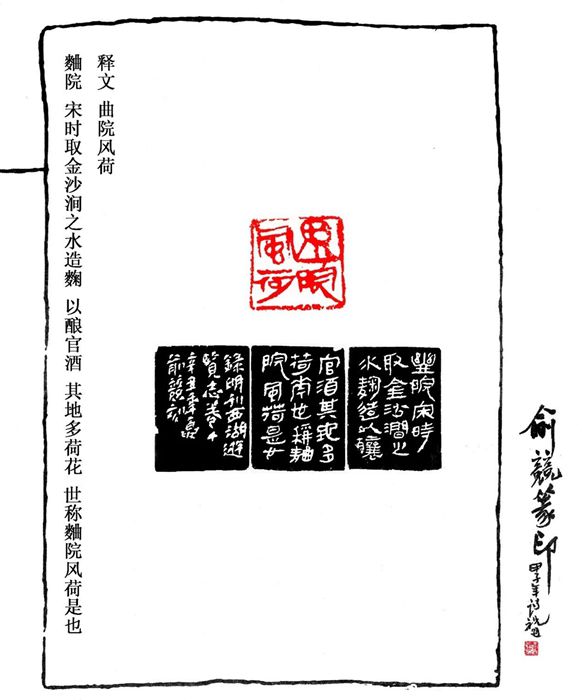 俞兢篆印
甲子年
曲院
風荷
麯院宋時
取金沙澗之
水麴造以釀
官酒其地多
荷世稱麯
院風荷是也
錄明刊西湖遊
覽志卷
辛丑季
俞兢
释文 曲院风荷
麯院 宋时取金沙涧之水造麴 以酿官酒 其地多荷花 世称麯院风荷是也